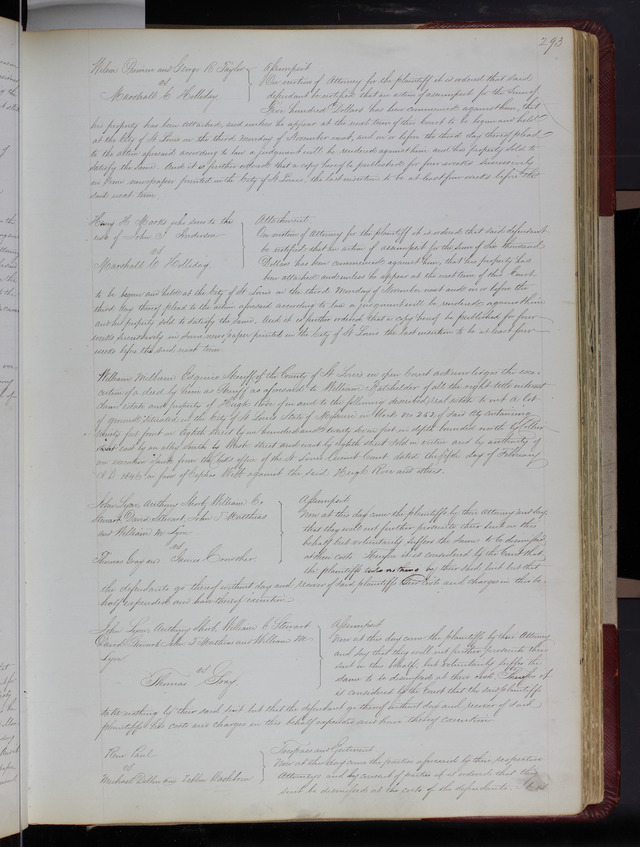 293
and George R Taylor } Assumpsit
vs On motion of Attorney for the plaintiff it is ordered that said
Marshall C Holliday defendant be notified that an action of assumpsit for the sum of
Five hundred Dollars has been commenced against him, that
his property has been attached, and unless he appear at the next term of this Court to be begun and held
at the City of St Louis on the third Monday of November next, and on or before the third day thereof plead
to the action aforesaid according to law a judgment will be rendered against him and his property sold to
satisfy the same. And it is further ordered that a copy hereof be published for four weeks successively
in some newspaper printed in the City of St Louis, the last insertion to be at least four weeks before the
said next term
H Marks who sues to the } Attachment
use of John S On motion of Attorney for the plaintiff it is ordered that said defendant
vs be notified that an action of assumpsit for the sum of Hundred
Marshall C Holliday. Dollars has been commenced against him, that his property has
been attached and unless he appear at the next term of this Court
to be begun and held at the City of St Louis on the third Monday of November next and on or before the
third day thereof plead to the action aforesaid according to law a judgment will be rendered against him
and his property sold to satisfy the same. And it is further ordered that a copy hereof be published for four
weeks successively in some newspaper printed in the City of St Louis the last insertion to be at least four
weeks before the said next term
William Milburn Esquire Sheriff of the County of St Louis in open Court acknowledges the exe-
cution of a deed by him as Sheriff as aforesaid to William of all the right title interest
claim estate and property of Hugh Rose of in and to the following described real estate to wit A lot
of ground situated in the City of St Louis State of Missouri in Block No 252 of said City containing
ninety feet front on Eighth Street by one hundred and twenty seven feet in depth bounded north by
east by an alley south by Street and west by eighth Street sold in virtue and by authority of
an execution issued from the Clerks office of the St Louis Circuit Court dated the fifth day of February
A D 1846 in favor of against the said Hugh Rose and others.
John Lyon, Anthony William C. } Assumpsit
Stewart David Stewart, John T Matthias Now at this day come the plaintiffs by their Attorney and say
and William M Lyon that they will not further prosecute their suit in this
vs behalf but voluntarily suffer the same to be dismissed
Thomas Gray and James at their costs. Therefore it is considered by the Court that
the plaintiffs take nothing by their said suit but that
the defendants go thereof without day and recover of said plaintiffs their costs and charges in this be-
half expended and have thereof execution.
John Lyon Anthony William C Stewart } Assumpsit
David Stewart John T Matthias and William M Now at this day come the plaintiffs by their Attorney
Lyon and say that they will not further prosecute their
vs suit in this behalf, but voluntarily suffer the
Thomas Gray. same to be dismissed at their costs. Therefore it
is considered by the Court that the said plaintiffs
take nothing by their said suit but that the defendant go thereof without day and recover of said
plaintiffs his costs and charges in this behalf expended and have thereof execution
Rene Paul } Trespass and Ejectment
vs Now at this day come the parties aforesaid by their respective
Michael and Attorneys and by consent of parties it is ordered that this
suit be dismissed at the costs of the defendants.